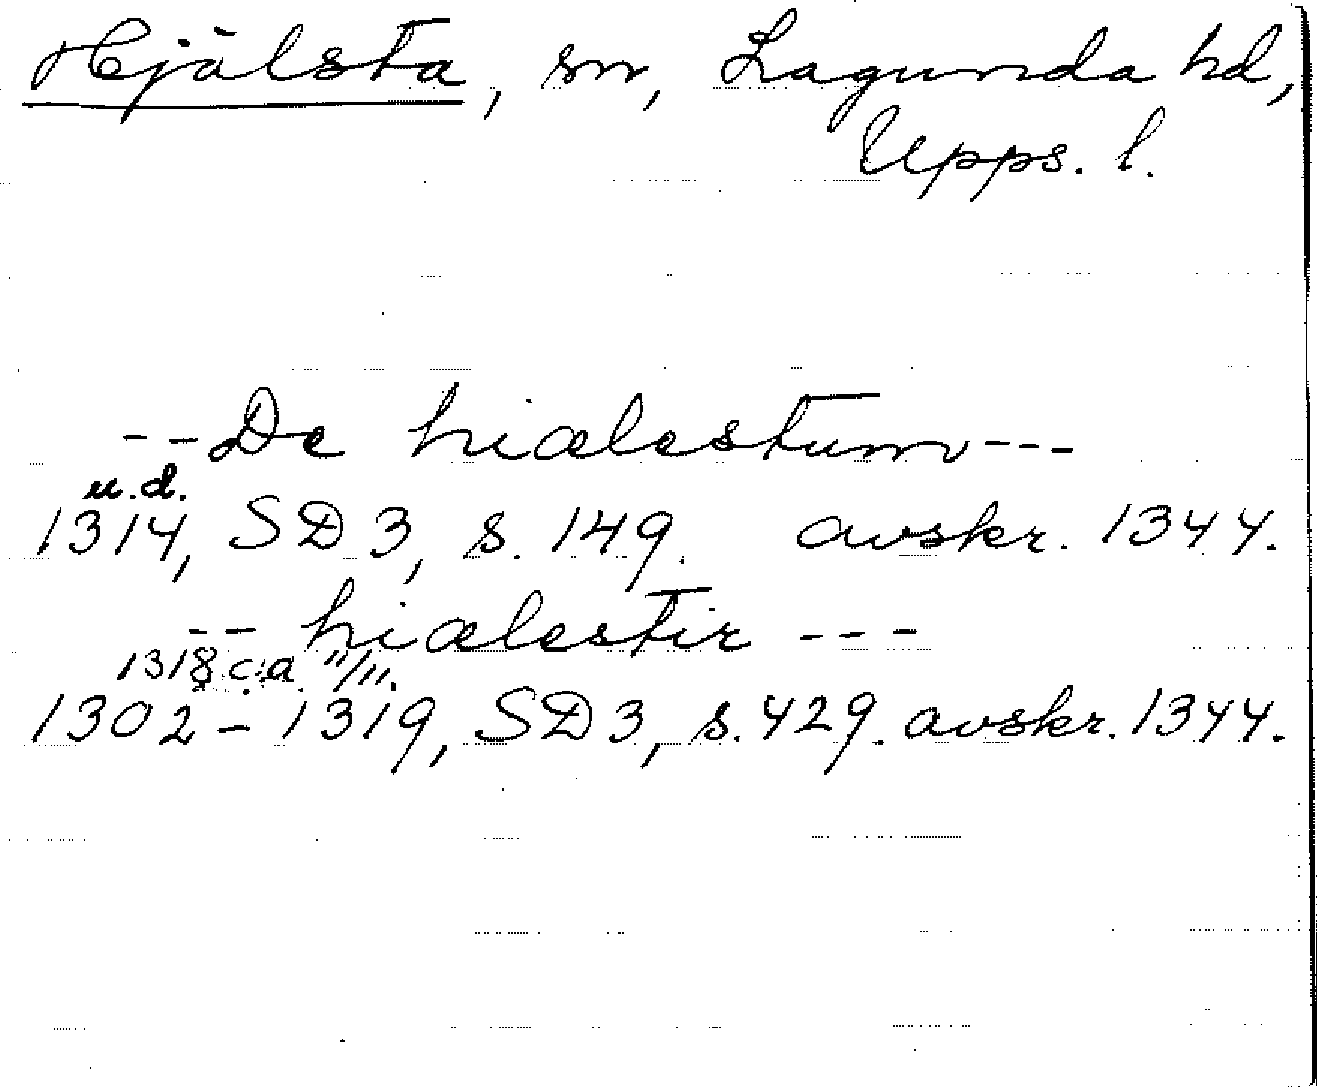 Hjälsta, sn, Lagunda hd,
Upps. l.
--De hiælestum---
u.d.
1314, SD 3, s. 149. avskr. 1344.
-- hiælestir ---
1318 c:a 11/11.
1302-1319, SD 3, s. 429. avskr. 1344.